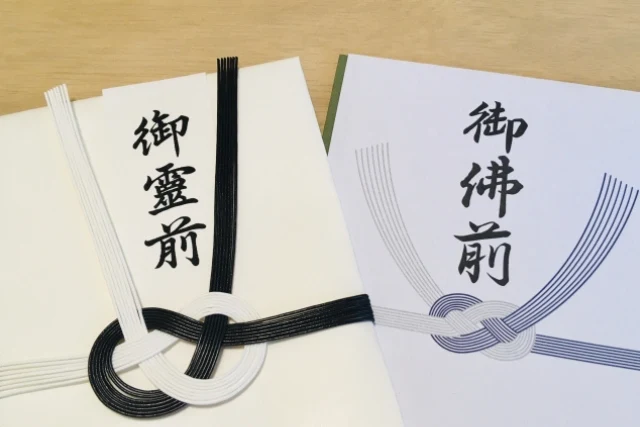 御靈前
御佛前